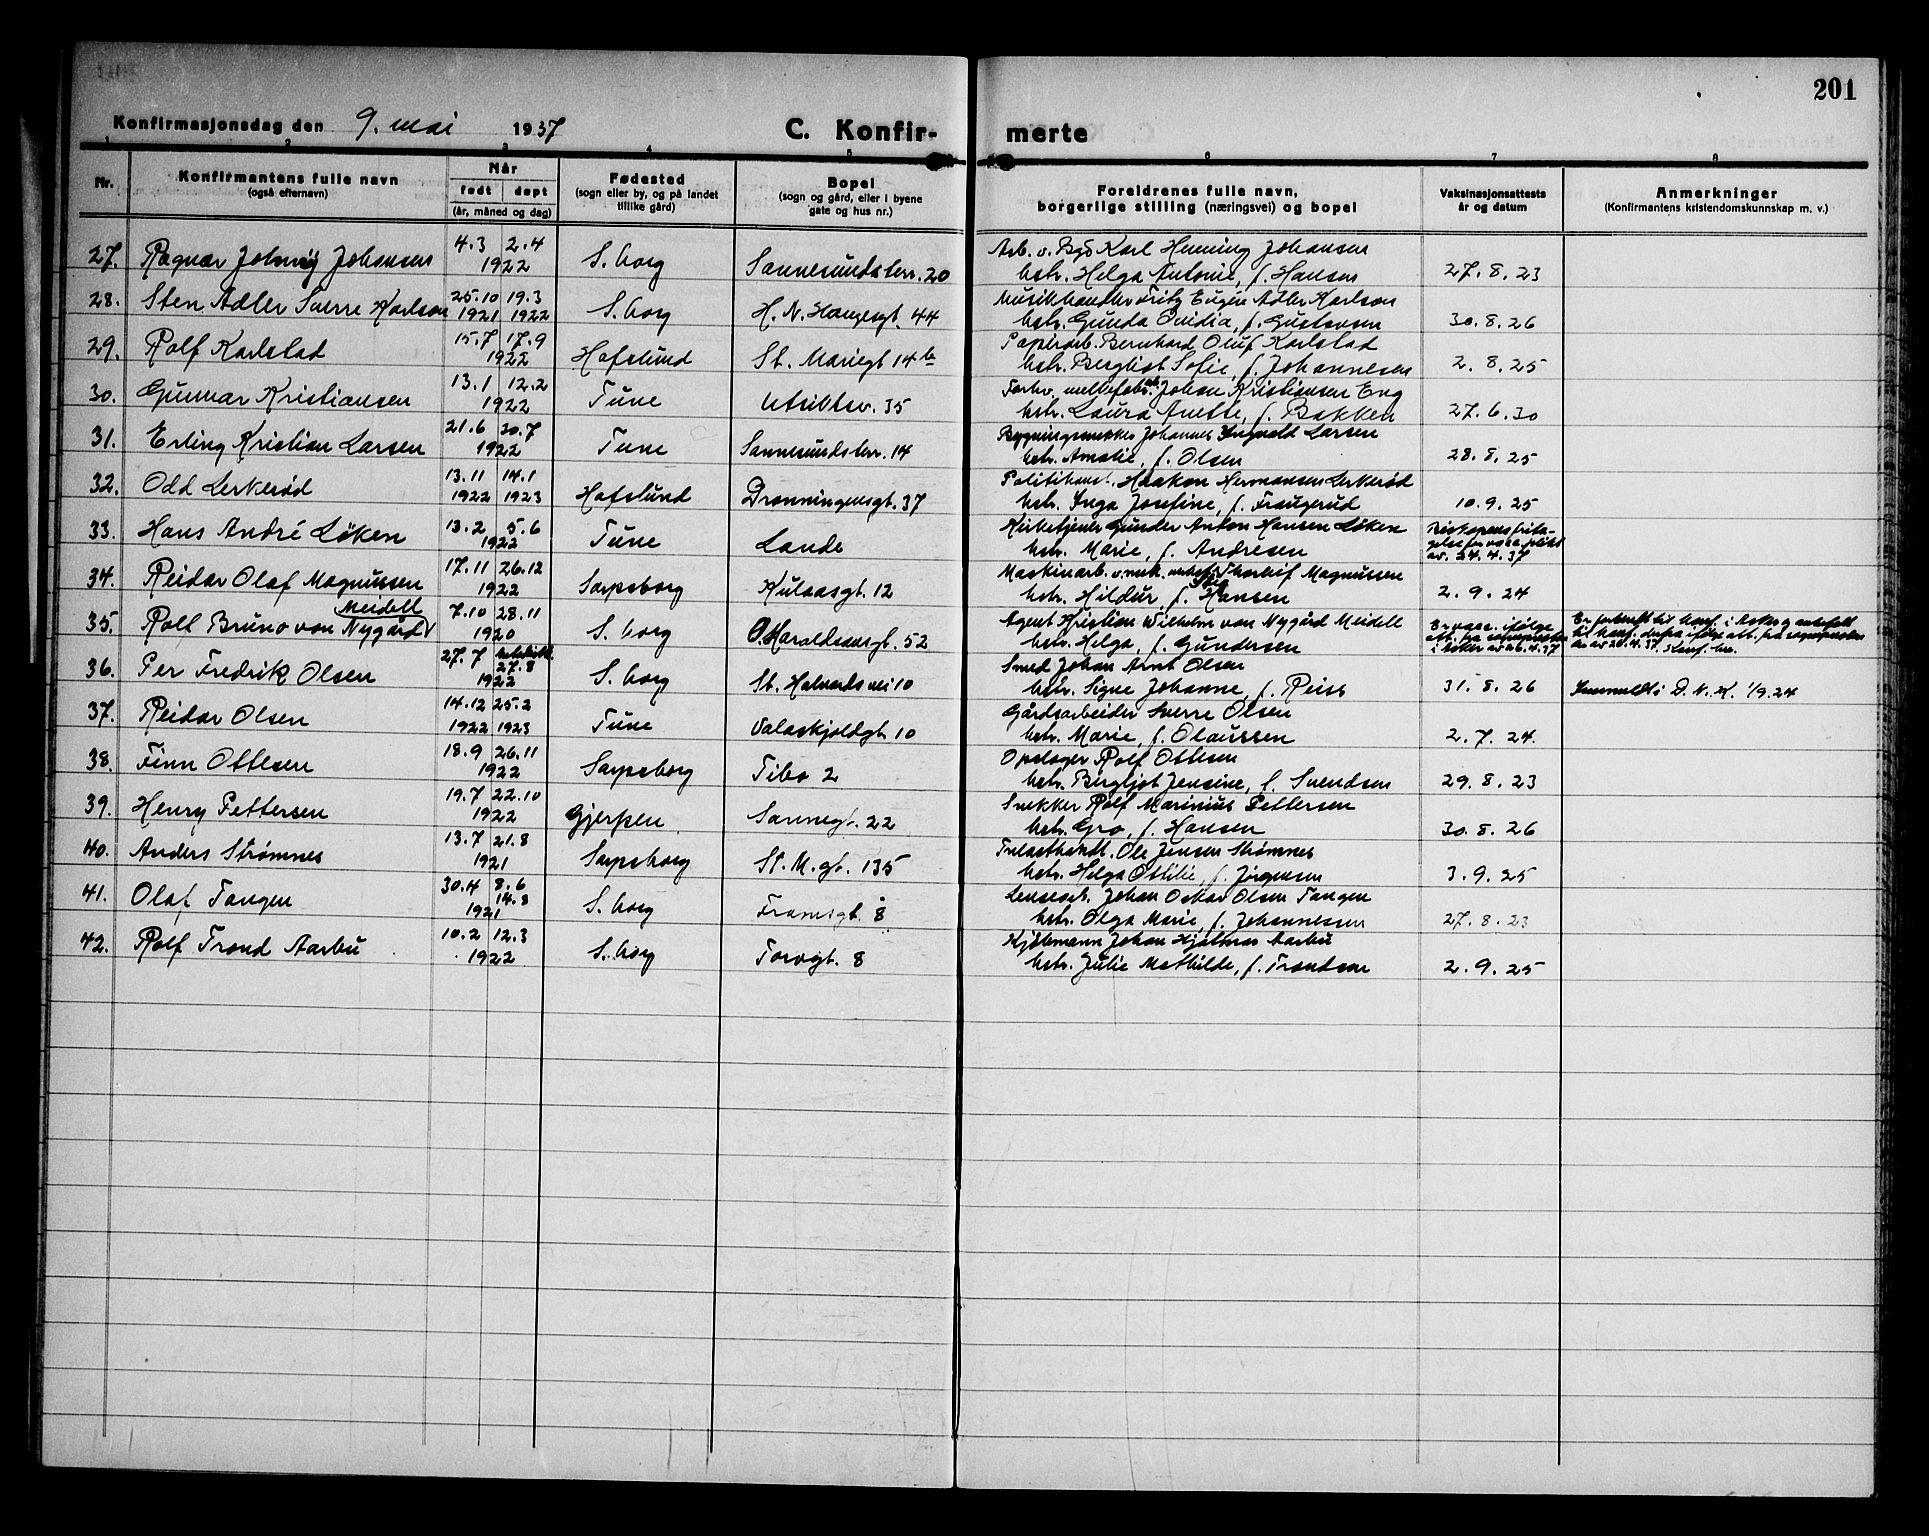 201
Konfirmasjonsdag den 9. mai 1937
C. Konfir-
merte
1 2 3 4 5 6 7 8
Nr.
Konfirmantens fulle navn
(også efternavn)
Når
født døpt
(år, måned og dag)
Fødested
(sogn eller by, og på landet
tillike gård)
Bopel
(sogn og gård, eller i byene
gate og hus nr.)
Foreldrenes fulle navn,
borgerlige stilling (næringsvei) og bopel
Vaksinasjonsattests
år og datum
Anmerkninger
(Konfirmantens kristendomskunnskap m. v.)
27. Ragnar Johnny Johansen 4.3 2.4 S.borg Sannesundsterr. 20 Arb. v. Bgs Karl Henning Johansen
1922 hstr. Helga Antonie, f. Hansen 27.8.23
28. Sten Adler Sverre Karlson 25.10 19.3 S.borg H. N. Haugesgt. 44 Musikhandler Fritz Eugen Adler Karlson
1921 1922 hstr. Gunda Ovidia, f. Gustavsen 30.8.26
29. Rolf Karlstad 15.7 17.9 Hafslund St. Mariegt 14b Papirarb. Bernhard Oluf Karlstad
1922 hstr. Bergliot Sofie, f. Johannesen 2.8.25
30. Gunnar Kristiansen 13.1 12.2 Tune Utsiktsv. 35 Johan Kristiansen Eng
1922 hstr. Laura Anette, f. Bakken 27.6.30
31. Erling Kristian Larsen 21.6 30.7 Tune Sannesundsterr. 14 Bygningssnekker Johannes Ingvald Larsen
1922 hstr. Amalie, f. Olsen 28.8.25
32. Odd Lerkerød 13.11 14.1 Hafslund Dronningensgt. 37 Politikonst. Haakon Hermansen Lerkerød
1922 1923 hstr. Inga Josefine, f. Fraugerud 10.9.25
33. Hans André Løken 13.2 5.6 Tune Lande Kirketjener Gunder Anton Hansen Løken Biskopens frita-
1922 hstr. Marie, f. Andresen gelse for vacc.plikt
av. 24.4.37
34. Reidar Olaf Magnussen 17.11 26.12 Sarpsborg Kulaasgt. 12 Maskinarb. v. mek. verksted Thorleif Magnussen
1922 hstr. Hildur f. Hansen 2.9.24
Meidell
35. Rolf Bruno von Nygård 7.10 28.11 S.borg O. Haraldssønsgt. 52 Agent Kristian Wilhelm von Nygård Meidell Er vacc. ifølge Er forberedt til konf. i Asker og anbefalt
1920 hstr. Helga, f. Gundersen att. fra sognepresten til konf. derfra ifølge att. fra sognepresten
i Asker av 26.4.37 der av 26.4.37
36. Per Fredrik Olsen 27.7 27.8 S.borg St. Halvardsvei 10 Smed Johan Arnt Olsen
1922 hstr. Signe Johanne, f. Reiss 31.8.26 Innmeldt i D.N.K. 1/9.24
37. Reidar Olsen 14.12 25.2 Tune Valaskjoldgt. 10 Gårdsarbeider Sverre Olsen
1922 1923 hstr. Marie, f. Olaussen 2.7.24.
38. Finn Ottesen 18.9 26.11 Sarpsborg Tibo 2 Opslager Rolf Ottesen
1922 hstr. Bergljot Jensine, f. Svendsen 29.8.23
39. Henry Pettersen 19.7 22.10 Gjerpen Sannegt. 22 Snekker Rolf Marinius Pettersen
1922 hstr. Gro, f. Hansen 30.8.26
40. Anders Strømnes 13.7 21.8 Sarpsborg St. M. gt. 135 Trelasthandl. Ole Jensen Strømnes
1921 hstr. Helga Ottilie, f. Jørgensen 3.9.25
41. Olaf Tangen 30.4 8.6 S.borg Framsgt. 8 Lensearb. Johan Oskar Olsen Tangen
14.8
1921 hstr. Olga Marie, f. Johannessen 27.8.23
42. Rolf Trond Aarbu 10.2 12.3 S.borg Torvgt. 8 Kjølemann Johan Hjalmar Aarbu
1922 hstr. Julie Mathilde, f. Trondsen 2.9.25